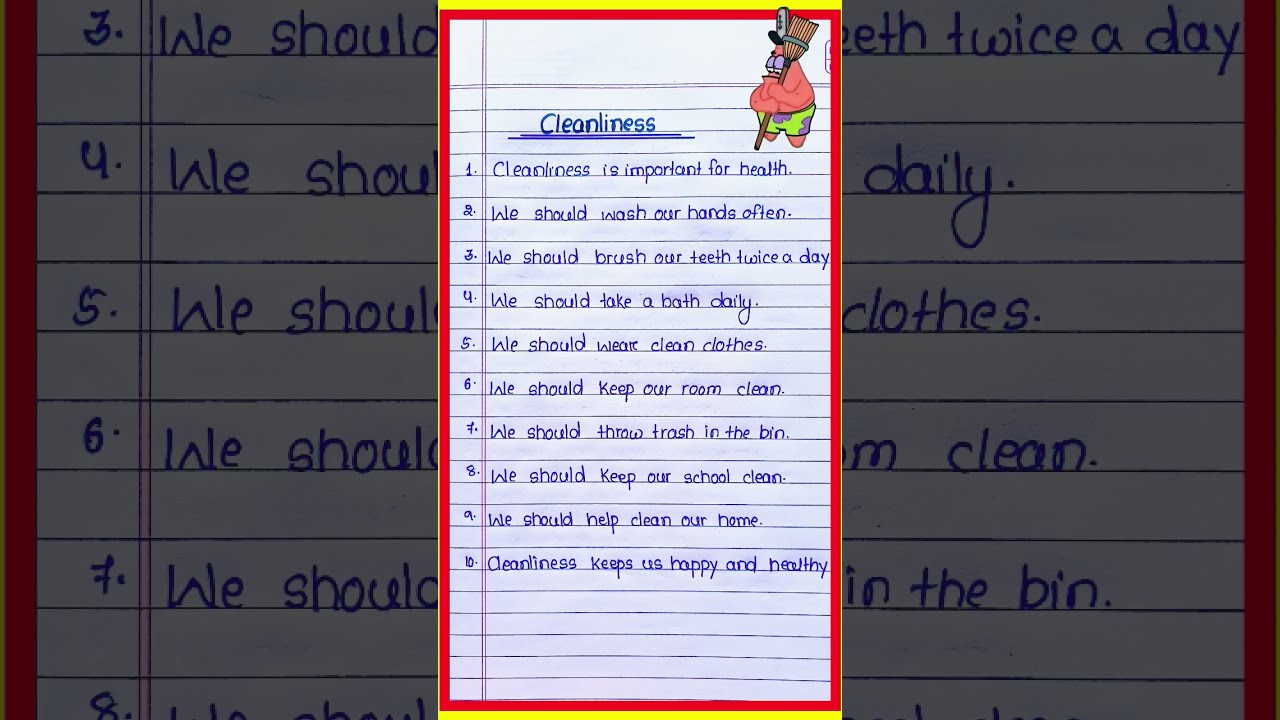 Cleanliness
1. Cleanliness is important for health.
2. We should wash our hands often.
3. We should brush our teeth twice a day
4. We should take a bath daily.
5. We should wear clean clothes.
6. We should keep our room clean.
7. We should throw trash in the bin.
8. We should keep our school clean.
9. We should help clean our home.
10. Cleanliness keeps us happy and healthy
3. We should
eeth twice a day
4. We shoul
daily.
5. We shoul
clothes.
6. We should
om clean.
7. We should
in the bin.
8.